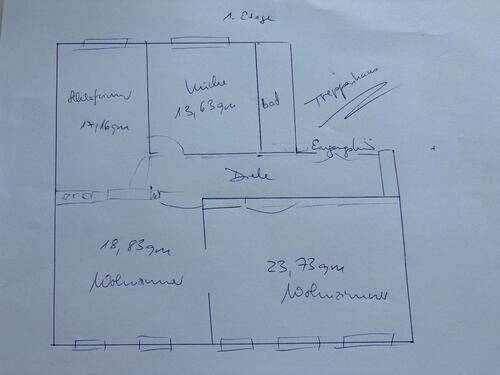 1. Etage
Küche
13,63qm
Schlafzimmer
17,16qm
bad
Treppenhaus
Eingangstür
Diele
18,83qm
Wohnzimmer
23,73qm
Wohnzimmer